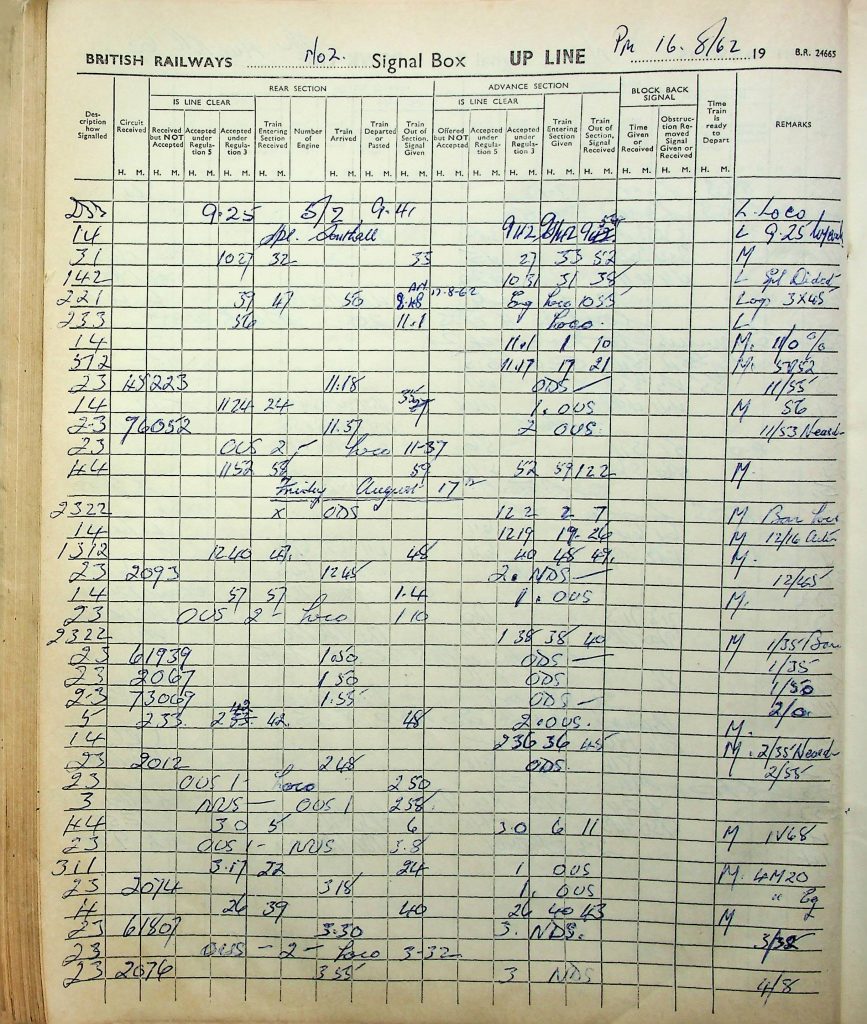 BRITISH RAILWAYS No2. Signal Box UP LINE PM 16. 8/62 19 B.R. 24665
REAR SECTION ADVANCE SECTION BLOCK BACK SIGNAL
IS LINE CLEAR IS LINE CLEAR
Description how Signalled Circuit Received Received but NOT Accepted Accepted under Regulation 5 Accepted under Regulation 3 Train Entering Section Received Number of Engine Train Arrived Train Departed or Passed Train Out of Section, Signal Given Offered but NOT Accepted Accepted under Regulation 5 Accepted under Regulation 3 Train Entering Section Given Train Out of Section, Signal Received Time Given or Received Obstruction Removed Signal Given or Received Time Train is ready to Depart REMARKS
H. M. H. M. H. M. H. M. H. M. H. M. H. M. H. M. H. M. H. M. H. M. H. M. H. M. H. M. H. M. H. M.
9.25 5/2 9.41 L. Loco
14 Spl. Southall L 9.25
31 10 27 32 33 27 33 52 M
142 10 31 31 38 L Spl
221 39 47 50 17-8-62 Eng Loco 10 55 3X45
233 56 11.1 Loco. L
14 11.1 1 10 M. 1/0
572 11.17 17 21 M.
23 48223 11.18 ODS — 11/55
14 11 24 24 1. OUS M 56
23 76052 11.37 2 OUS. 11/53 Neard
23 OUS 2 — Loco 11-37
44 11 52 58 59 52 59 12 2 M.
Friday August 17th
2322 x ODS 12 2 2 7 M
14 12 19 19. 26 M 12/16
1312 12 40 47. 48 40 48 49. M.
23 2093 12 45 2. NDS — 12/45
14 57 57 1.4 1. OUS M.
23 OUS 2 — Loco 1 10
2322 1 38 38 40 M 1/35
23 61939 1.50 ODS — 1/35
23 2067 1 50 ODS 1/50
23 73069 1.55 ODS — 2/0
5 233. 2 42 42. 48 2. OUS. M.
14 2 36 36 45 M. 2/35 Neard
23 2012 2 48 ODS. 2/55
23 OUS 1 — Loco 2 50
3 NUS — OUS 1 2 58.
44 3 0 5 6 3.0 6 11 M 1V68
23 OUS 1 — NUS 3.8
311 3.17 22 24 1 OUS M. 4M20
23 2074 3 18 1. OUS " Eg
4 26 39 40 26 40 43 M 2
23 61807 3.30 3. NDS. 3/35
23 OUS — 2 — Loco 3-32
23 2076 3 55 3 NDS 4/8